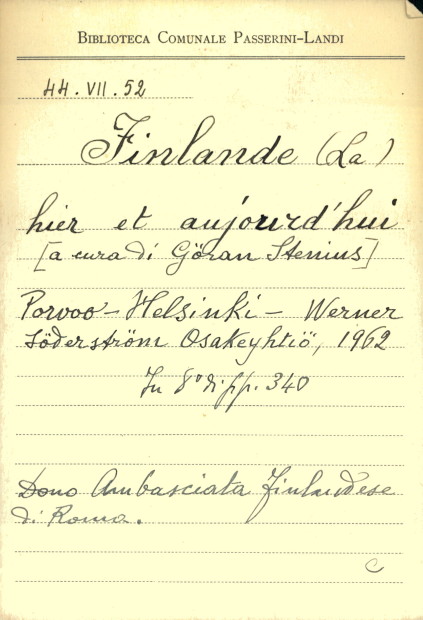 BIBLIOTECA COMUNALE PASSERINI-LANDI
44.VII.52
Finlande (La)
hier et aujourd'hui
[a cura di Göran Stenius]
Porvoo - Helsinki - Werner
Söderström Osakeyhtiö, 1962
In 8° di pp. 340
Dono Ambasciata Finlandese
di Roma.
C